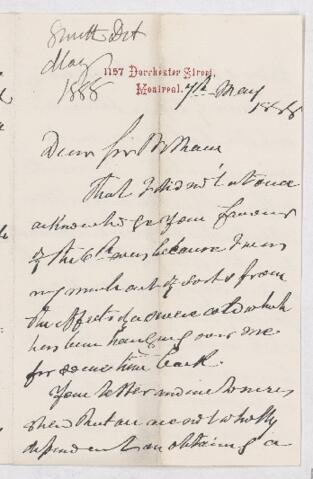 Smith Det
May
1888
1157 Dorchester Street,
Montreal, 7th May
1888
Dear Sir William
That I did not at once
acknowledge your favour
of the 6th was because I was
very much out of sorts from
the effects of a severe cold which
has been hanging over me
for some time back.
Your letter and
show that are not wholly
dependent on obtaining a